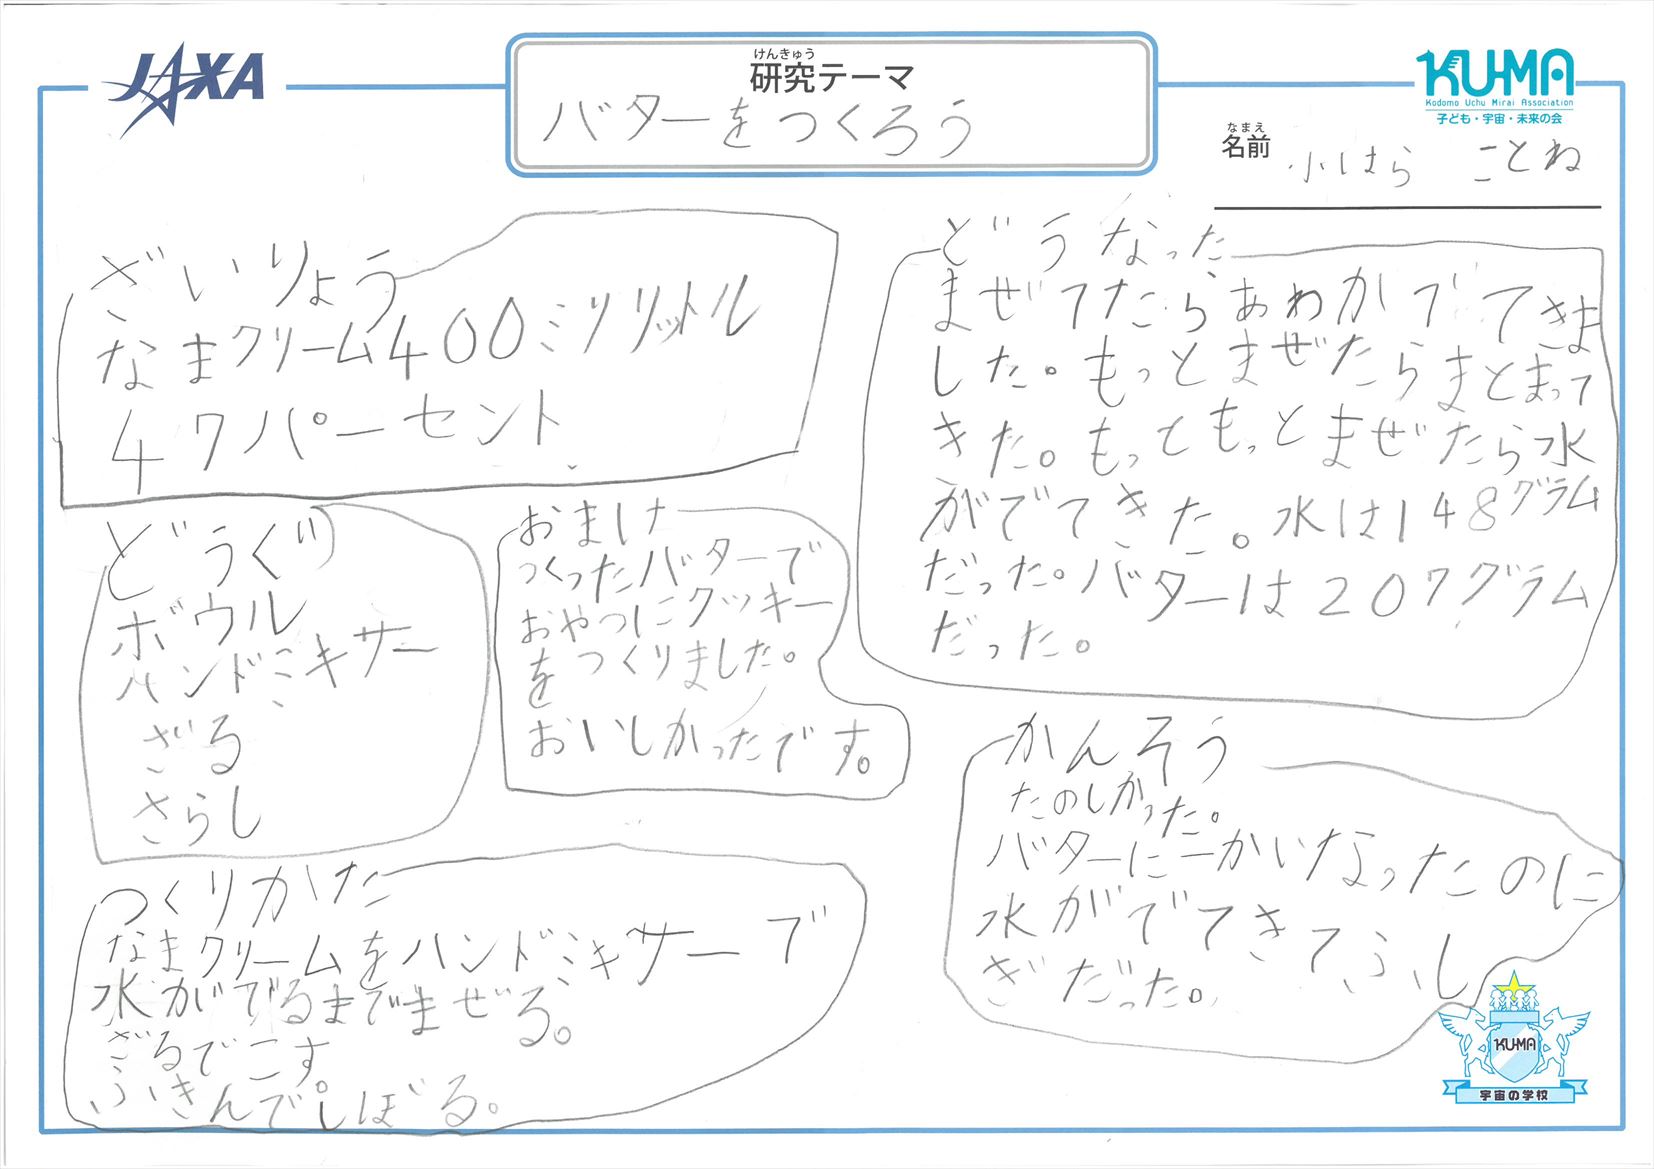 JAXA
けんきゅう
研究テーマ
バターをつくろう
KUMA
Kodomo Uchu Mirai Association
子ども・宇宙・未来の会
なまえ
名前
小はら ことね
ざいりょう
なまクリーム400ミリリットル
47パーセント
どうぐ
ボウル
ハンドミキサー
ざる
さらし
おまけ
つくったバターで
おやつにクッキー
をつくりました。
おいしかったです。
つくりかた
なまクリームをハンドミキサーで
水がでるまでまぜる。
ざるでこす。
ふきんでしぼる。
どうなった
まぜてたらあわがでてきま
した。もっとまぜたらまとまって
きた。もっともっとまぜたら水
がでてきた。水は148グラム
だった。バターは207グラム
だった。
かんそう
たのしかった。
バターに一かいなったのに
水がでてきてふし
ぎだった。
KUMA
宇宙の学校